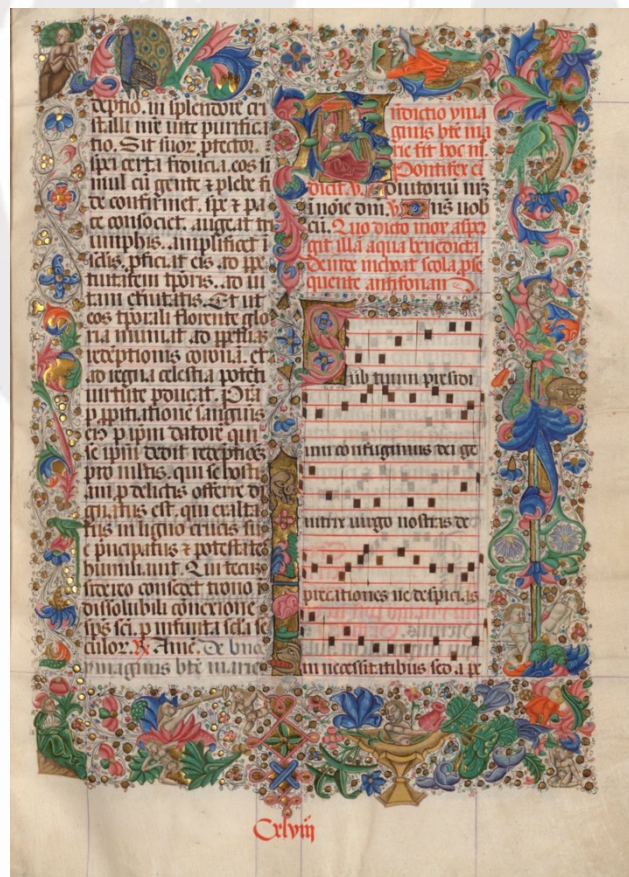 deptio. in splendore cri
stalli nie uite purifica
tio. Sit suor. ptector.
spei certa fiducia. eos si
mul cū gente ⁊ plebe fi
de confirmet. spe ⁊ pa
ce consociet. augeat tri
umphis. amplificet i
seclis. pficiat eis ad pe
tuitatem tporis. ad ui
tam etnitatis. Et ut
eos tporali florente glo
ria muniat. ad ppetuas
redēptionis corona. et
ad regna celestia potēti
uirtute pducat. Pra
p ppitiatione sanguis
eis p ipm datorē qui
se ipm dedit redēptiōez
pro multis. qui se hosti
am p delictis offerre di
gnatus est. qui exalta
tus in ligno crucis sue
principatus ⁊ potestates
humiliauit. Qui tecū
sidereo consedet trono i
dissolubili conexione
spūs sci. p infinita scla se
culor. ℟ Amē. De bnō
ymaginis btē marie
ndictio yma
ginis btē ma
rie fit hoc m.
Pontifex cū
dicit. v. Adiutoriū nrz
i noīe dni. v. Dns uob
cū. Quo dicto mox asper
git illā aqua benedicta
Deinte incipiat scola pse
quente antifonan
Sub tuum presidi
um confugimus dei ge
nitrix uirgo nostras de
precationes ne despicias
in necessitatibus sed a pe
Cxlviij